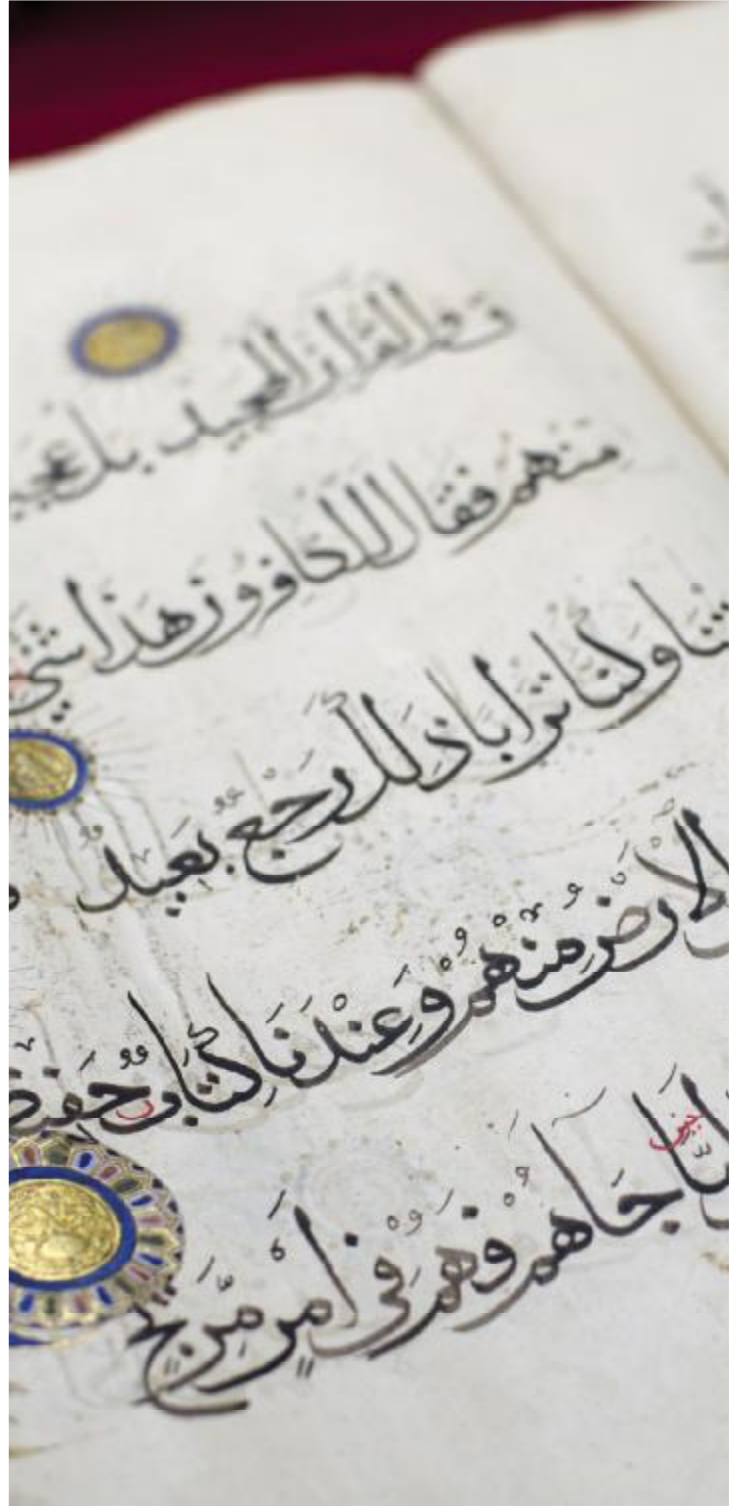 ق والقرآن المجيد بل عجبـ
منهم فقال الكافرون هذا شي
متنا وكنا ترابا ذلك رجع بعيد
الارض منهم وعندنا كتاب حفيظ
لما جاهم فهم في امر مريج